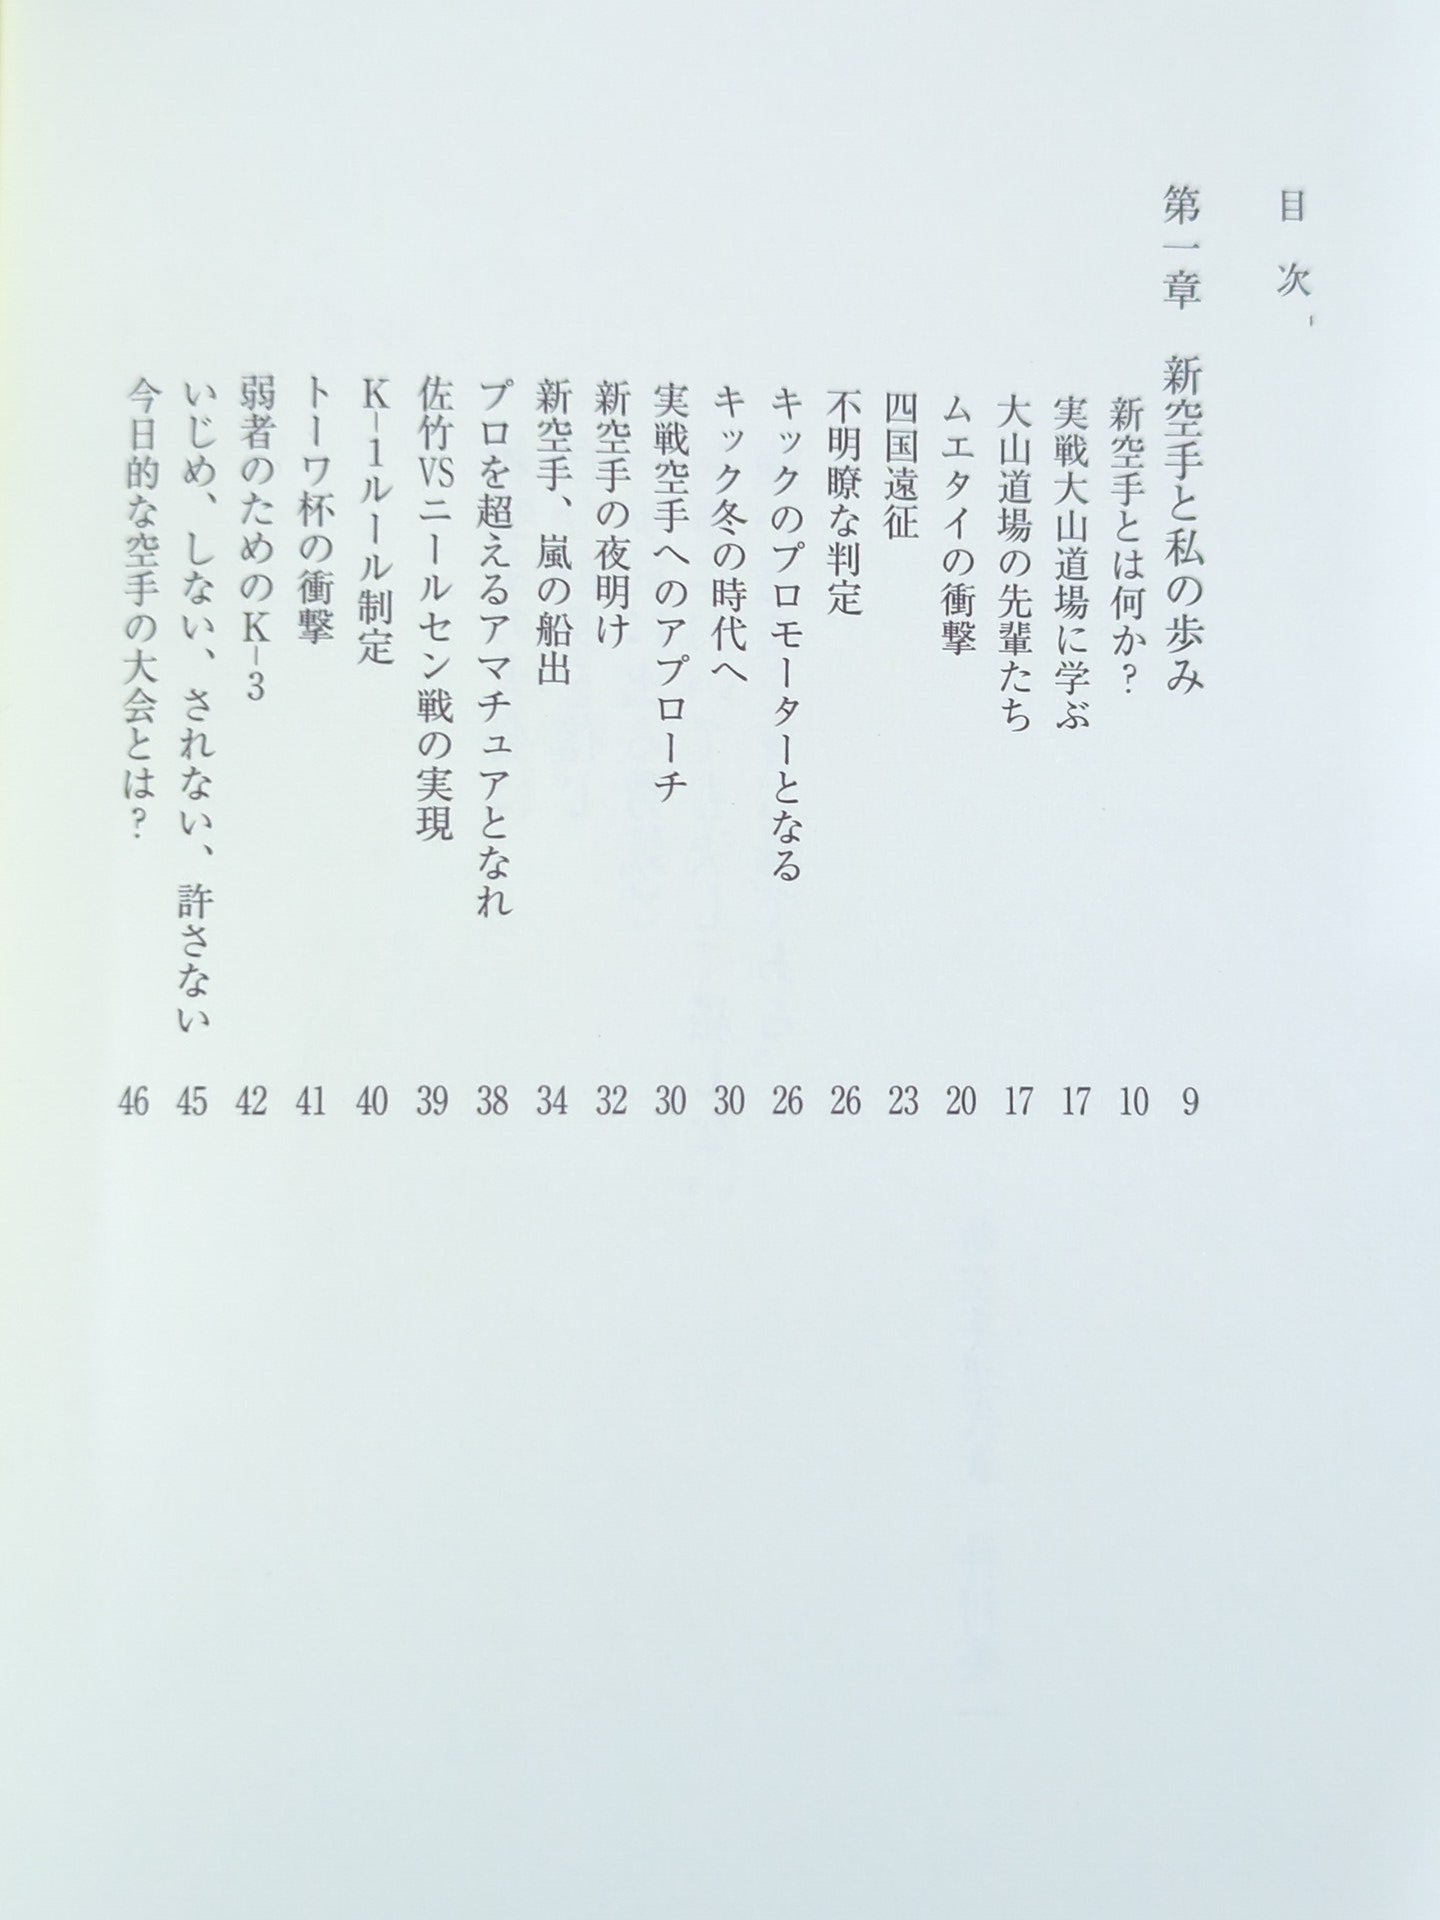 目次
第一章　新空手と私の歩み　9
新空手とは何か？　10
実戦大山道場に学ぶ　17
大山道場の先輩たち　17
ムエタイの衝撃　20
四国遠征　23
不明瞭な判定　26
キックのプロモーターとなる　26
キック冬の時代へ　30
実戦空手へのアプローチ　30
新空手の夜明け　32
新空手、嵐の船出　34
プロを超えるアマチュアとなれ　38
佐竹VSニールセン戦の実現　39
K-1ルール制定　40
トーワ杯の衝撃　41
弱者のためのK-3　42
いじめ、しない、されない、許さない　45
今日的な空手の大会とは？　46